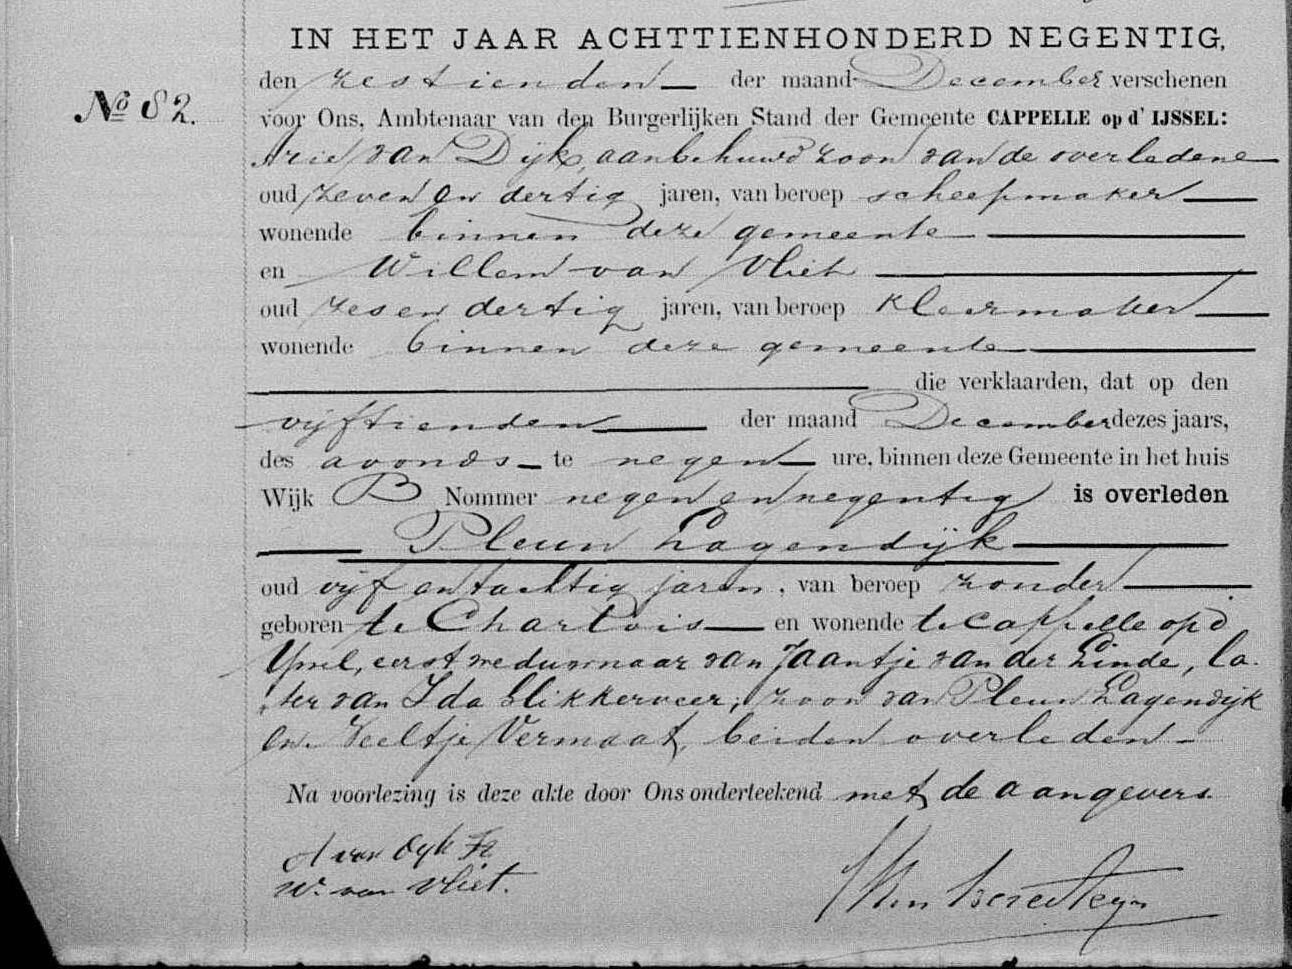 IN HET JAAR ACHTTIENHONDERD NEGENTIG,
den zestienden der maand December verschenen
No 82.
voor Ons, Ambtenaar van den Burgerlijken Stand der Gemeente CAPPELLE op d' IJSSEL:
Arie van Dijk, aanbehuwd zoon van de overledene
oud zeven en dertig jaren, van beroep scheepmaker
wonende binnen deze gemeente
en Willem van Vliet
oud zes en dertig jaren, van beroep kleermaker
wonende binnen deze gemeente
die verklaarden, dat op den
vijftienden der maand December dezes jaars,
des avonds te negen ure, binnen deze Gemeente in het huis
Wijk B Nommer negen en negentig is overleden
Pleun Lagendijk
oud vijf en tachtig jaren, van beroep zonder
geboren te Charlois en wonende te Cappelle op d
IJssel, eerst weduwnaar van Jaantje van der Linde, la-
ter van Ida Blikkerveer; zoon van Pleun Lagendijk
en Veeltje Vermaat, beiden overleden
Na voorlezing is deze akte door Ons onderteekend met de aangevers.
A van Dyk
W. van Vliet.